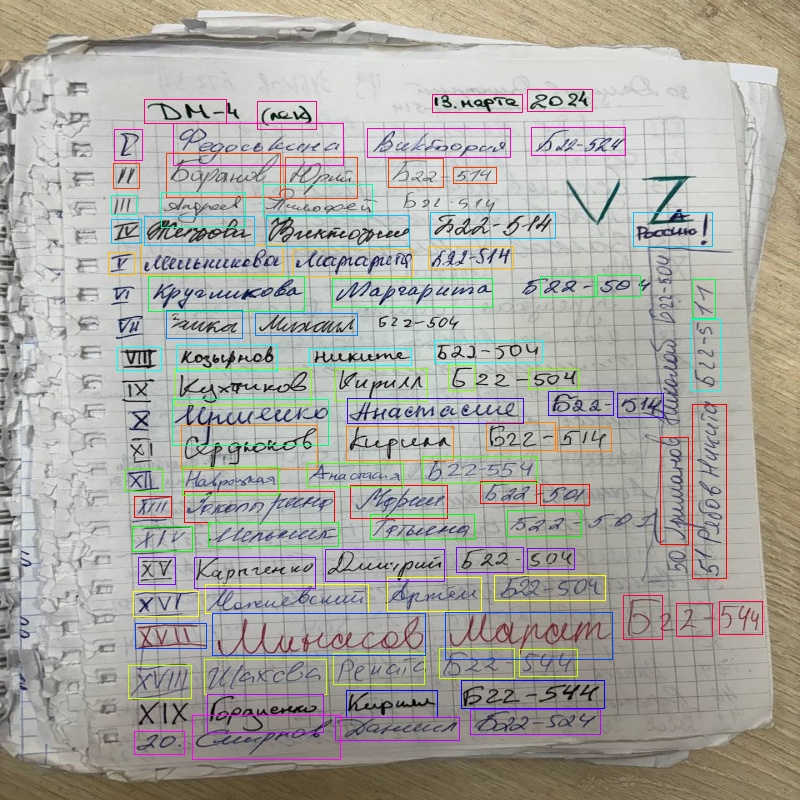 DM-4 (лек) 13. марта 2024
I Федоськина Виктория Б22-524
II Баранов Юрий Б22-514
III Андреев Тимофей Б22-514
V Z
IV Петрова Виктория Б22-514
Za Россию!
V Мельникова Маргарита Б22-514
VI Кругликова Маргарита Б22-504
VII Заика Михаил Б22-504
VIII Козырнов Никита Б22-504
IX Кухтиков Кирилл Б22-504
X Иршенко Анастасия Б22-514
XI Сердюков Кирилл Б22-514
XII Навроцкая Анастасия Б22-554
XIII Мария Б22-501
XIV Мельник Татьяна Б22-501
XV Карпченко Дмитрий Б22-504
XVI Можиевский Артём Б22-504
XVII Минасов Марат Б22-544
XVIII Шахова Рената Б22-544
XIX Гордиенко Кирилл Б22-544
20. Смирнов Даниил Б22-524
50 Николай Б22-504
51 Рябов Никита Б22-511